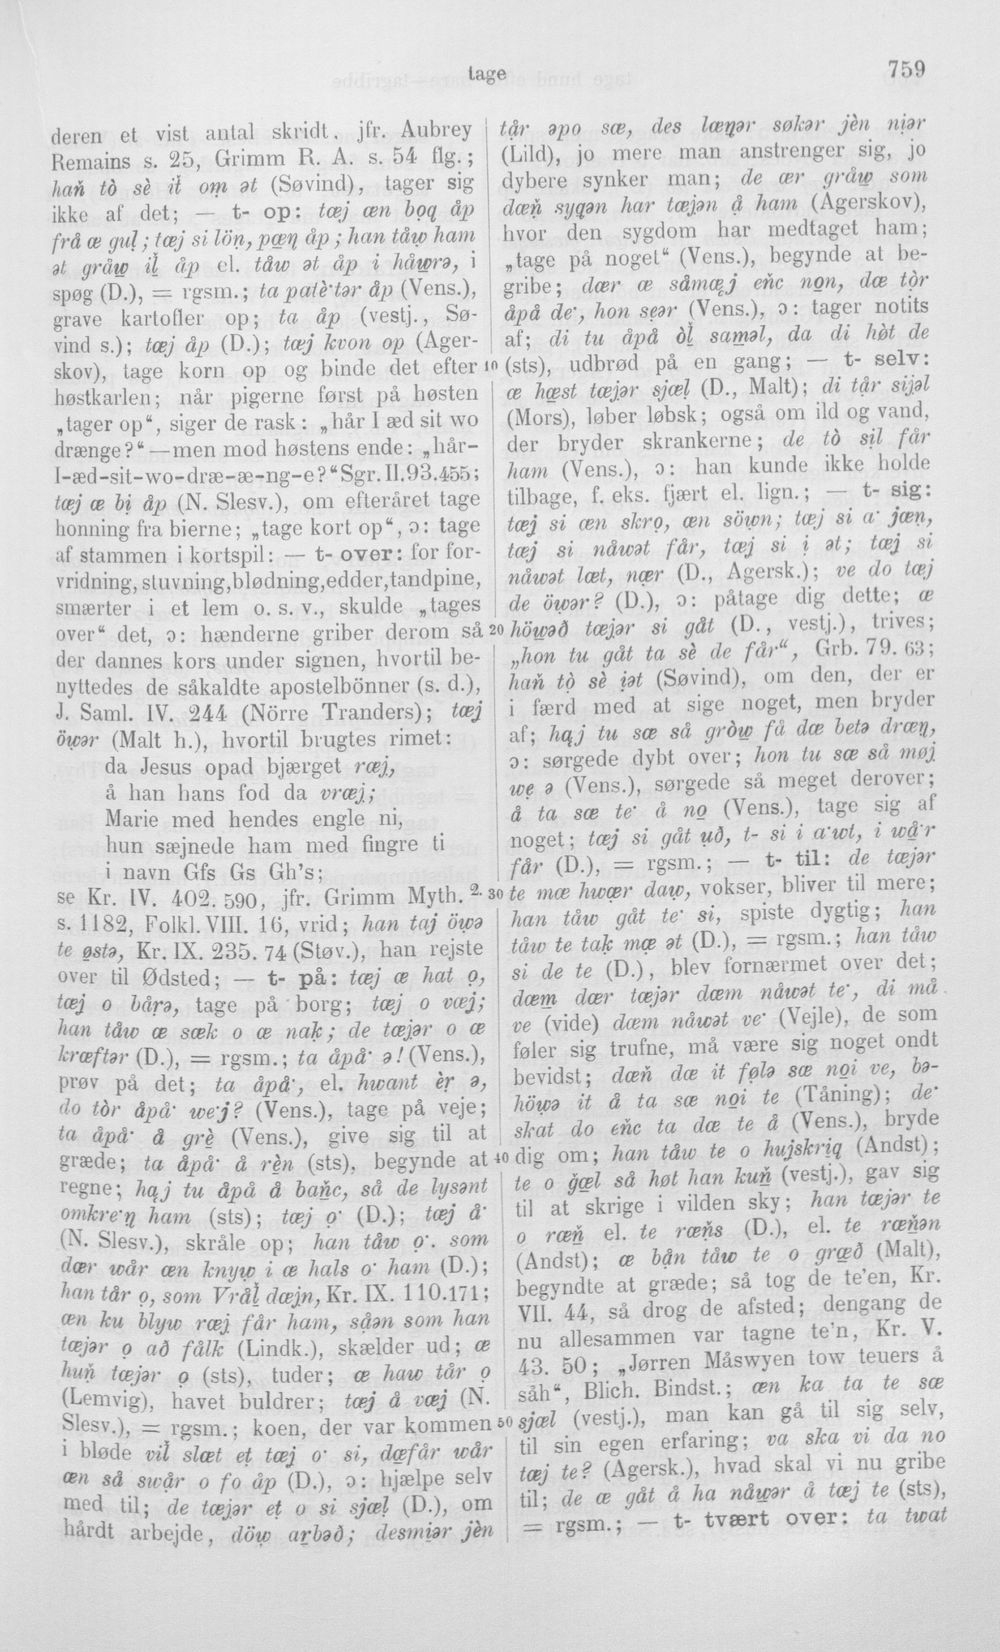 tage
759
deren et vist antal skridt. jfr. Aubrey
Remains s. 25, Grimm R. A. s. 54 flg.;
hań tò sè it om̨ ət (Søvind), tager sig
ikke af det; — t- op: tæj æn bǫq åp
frå æ guļ; tæj si lön̨, pæn̨ åp; han tåw ham
ət gråw̨ iļ åp el. tåw ət åp i håw̨rə, i
spøg (D.), = rgsm.; ta patè·tər åp (Vens.),
grave kartofler op; ta åp (vestj., Sø-
vind s.); tæj åp (D.); tæj kvon op (Ager-
skov), tage korn op og binde det efter
høstkarlen; når pigerne først på høsten
„tager op“, siger de rask: „hår I æd sit wo
drænge?“ — men mod høstens ende: „hår-
I-æd-sit-wo-dræ-æ-ng-e?“ Sgr. II. 93. 455;
tæj æ bį åp (N. Slesv.), om efteråret tage
honning fra bierne; „tage kort op“, ɔ: tage
af stammen i kortspil: — t- over: for for-
vridning, stuvning, blødning, edder, tandpine,
smærter i et lem o. s. v., skulde „tages
over“ det, ɔ: hænderne griber derom så
der dannes kors under signen, hvortil be-
nyttedes de såkaldte apostelbönner (s. d.),
J. Saml. IV. 244 (Nörre Tranders); tæj
öw̨ər (Malt h.), hvortil brugtes rimet:
da Jesus opad bjærget ræj,
å han hans fod da vræj;
Marie med hendes engle ni,
hun sæjnede ham med fingre ti
i navn Gfs Gs Gh's;
se Kr. IV. 402. 590, jfr. Grimm Myth. 2.
s. 1182, Folkl. VIII. 16, vrid; han taj öw̨ə
te østə, Kr. IX. 235. 74 (Støv.), han rejste
over til Ødsted; — t- på: tæj æ hat ǫ,
tæj o bårə, tage på borg; tæj o væj;
han tåw æ sæk o æ nak; de tæjər o æ
kræftər (D.), = rgsm.; ta åpå· ə! (Vens.),
prøv på det; ta åpå·, el. hwant èr ə,
do tòr åpå· we·j? (Vens.), tage på veje;
ta åpå· å grè (Vens.), give sig til at
græde; ta åpå· å rèn (sts), begynde at
regne; hąj tu åpå å bańc, så de lysənt
omkre·ŋ ham (sts); tæj ǫ· (D.); tæj å·
(N. Slesv.), skråle op; han tåw ǫ·. som
dær wår æn knyw̨ i æ hals o· ham (D.);
han tår ǫ, som Vråļ dæjn, Kr. IX. 110. 171;
æn ku blyw ræj får ham, såən som han
tæjər ǫ að fålk (Lindk.), skælder ud; æ
huń tæjər ǫ (sts), tuder; æ haw tår ǫ
(Lemvig), havet buldrer; tæj å væj (N.
Slesv.), = rgsm.; koen, der var kommen
i bløde vil slæt et tæj o· si, dæfår wår
æn så swår o fo åp (D.), ɔ: hjælpe selv
med til; de tæjər et o si sjæļ (D.), om
hårdt arbejde, döw̨ arbəð; desmiər jèn
tår əpo sæ, des læŋər søkər jèn niər
(Lild), jo mere man anstrenger sig, jo
dybere synker man; de ær gråw̨ som
dæń syqən har tæjən å ham (Agerskov),
hvor den sygdom har medtaget ham;
„tage på noget“ (Vens.), begynde at be-
gribe; dær æ såmæj eńc non, dæ tòr
åpå de·, hon seər (Vens.), ɔ: tager notits
af; di tu åpå òļ saməl, da di hòt de
10 (sts), udbrød på en gang; — t- selv:
æ hæst tæjər sjæļ (D., Malt); di tår sijəl
(Mors), løber løbsk; også om ild og vand,
der bryder skrankerne; de tò sil får
ham (Vens.), ɔ: han kunde ikke holde
tilbage, f. eks. fjært el. lign.; — t- sig:
tæj si æn skrǫ, æn söw̨n; tæj si a· jæn̨,
tæj si nåwət får, tæj si į ət; tæj si
nåwət læt, nær (D., Agersk.); ve do tæj
de öw̨ər? (D.), ɔ: påtage dig dette; æ
20 höw̨əð tæjər si gåt (D., vestj.), trives;
„hon tu gåt ta sè de får“, Grb. 79. 63;
hań tò sè iət (Søvind), om den, der er
i færd med at sige noget, men bryder
af; hąj tu sæ så gròw̨ få dæ betə dræŋ,
ɔ: sørgede dybt over; hon tu sæ så møj
wę ə (Vens.), sørgede så meget derover;
å ta sæ te· å no (Vens.), tage sig af
noget; tæj si gåt uð, t- si i a·wt, i wå·r
får (D.), = rgsm.; — t- til: de tæjər
30 te mæ hwær daw̨, vokser, bliver til mere;
han tåw gåt te· si, spiste dygtig; han
tåw te tak mæ ət (D.), = rgsm.; han tåw
si de te (D.), blev fornærmet over det;
dæm dær tæjər dæm nåwət te·, di må
ve (vide) dæm nåwət ve· (Vejle), de som
føler sig trufne, må være sig noget ondt
bevidst; dæń dæ it følə sæ noi ve, bə-
höw̨ə it å ta sæ noi te (Tåning); de·
skat do eńc ta dæ te å (Vens.), bryde
40 dig om; han tåw te o hujskriq (Andst);
te o gæl så høt han kuń (vestj.), gav sig
til at skrige i vilden sky; han tæjər te
o ræń el. te ræńs (D.), el. te ræńən
(Andst); æ bąn tåw te o græð (Malt),
begyndte at græde; så tog de te'en, Kr.
VII. 44, så drog de afsted; dengang de
nu allesammen var tagne te'n, Kr. V.
43. 50; „Jørren Måswyen tow teuers å
såh“, Blich. Bindst.; æn ka ta te sæ
50 sjæl (vestj.), man kan gå til sig selv,
til sin egen erfaring; va ska vi da no
tæj te? (Agersk.), hvad skal vi nu gribe
til; de æ gåt å ha nåw̨ər å tæj te (sts),
= rgsm.; — t- tvært over: ta twat